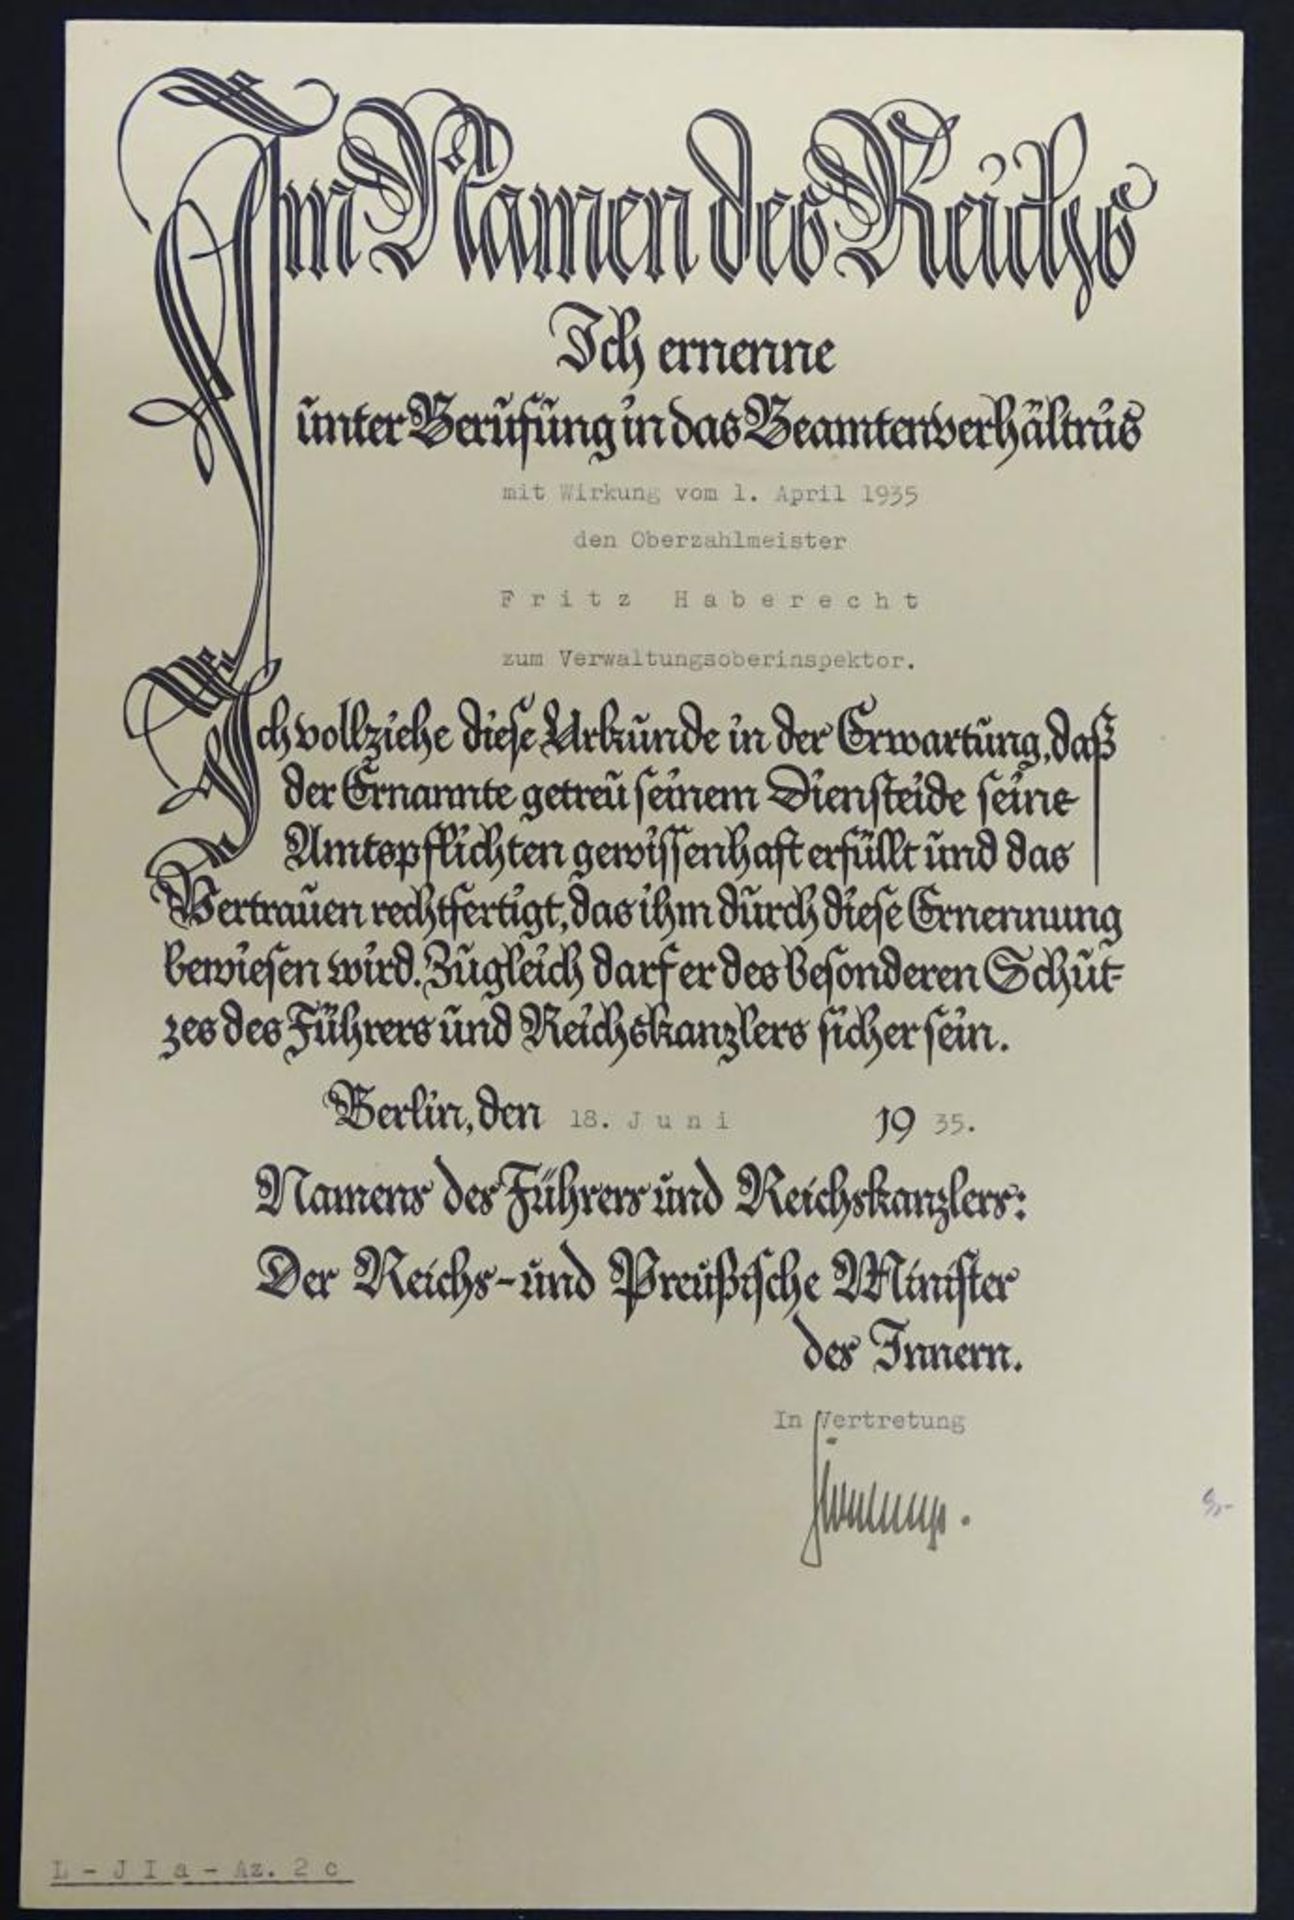 Im Namen des Reichs
Ich ernenne
unter Berufung in das Beamtenverhältnis
mit Wirkung vom 1. April 1935
den Oberzahlmeister
Fritz Haberecht
zum Verwaltungsoberinspektor.
Ich vollziehe diese Urkunde in der Erwartung, daß
der Ernannte getreu seinem Diensteide seine
Amtspflichten gewissenhaft erfüllt und das
Vertrauen rechtfertigt, das ihm durch diese Ernennung
bewiesen wird. Zugleich darf er des besonderen Schut-
zes des Führers und Reichskanzlers sicher sein.
Berlin, den 18. Juni 1935.
Namens des Führers und Reichskanzlers:
Der Reichs- und Preußische Minister
des Innern.
In Vertretung
L - J I a - Az. 2 c